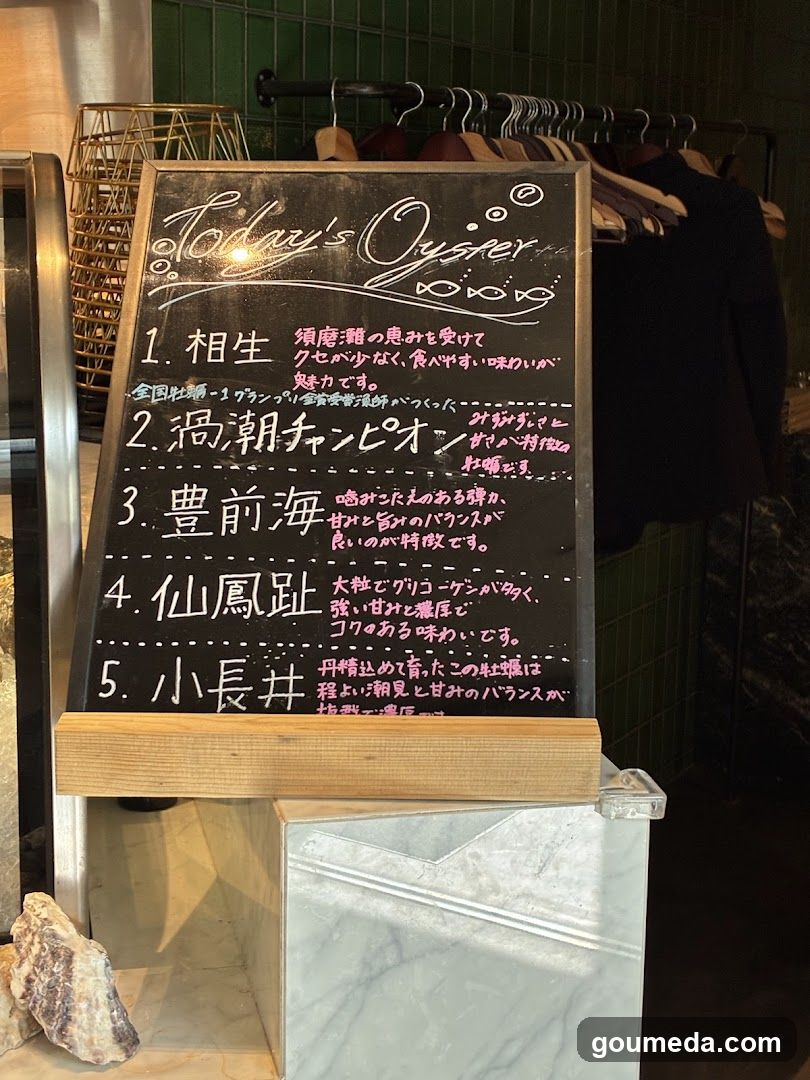 Today's Oyster
1. 相生
須磨灘の恵みを受けて
クセが少なく、食べやすい味わいが
魅力です。
全国牡蠣-1グランプリ金賞受賞漁師がつくった
2. 渦潮チャンピオン
みずみずしさと
甘さが特徴の
牡蠣です。
3. 豊前海
噛みごたえのある弾力、
甘みと旨みのバランスが
良いのが特徴です。
4. 仙鳳趾
大粒でグリコーゲンが多く、
強い甘みと濃厚で
コクのある味わいです。
5. 小長井
丹精込めて育ったこの牡蠣は
程よい潮見と甘みのバランスが
抜群で濃厚です
goumeda.com